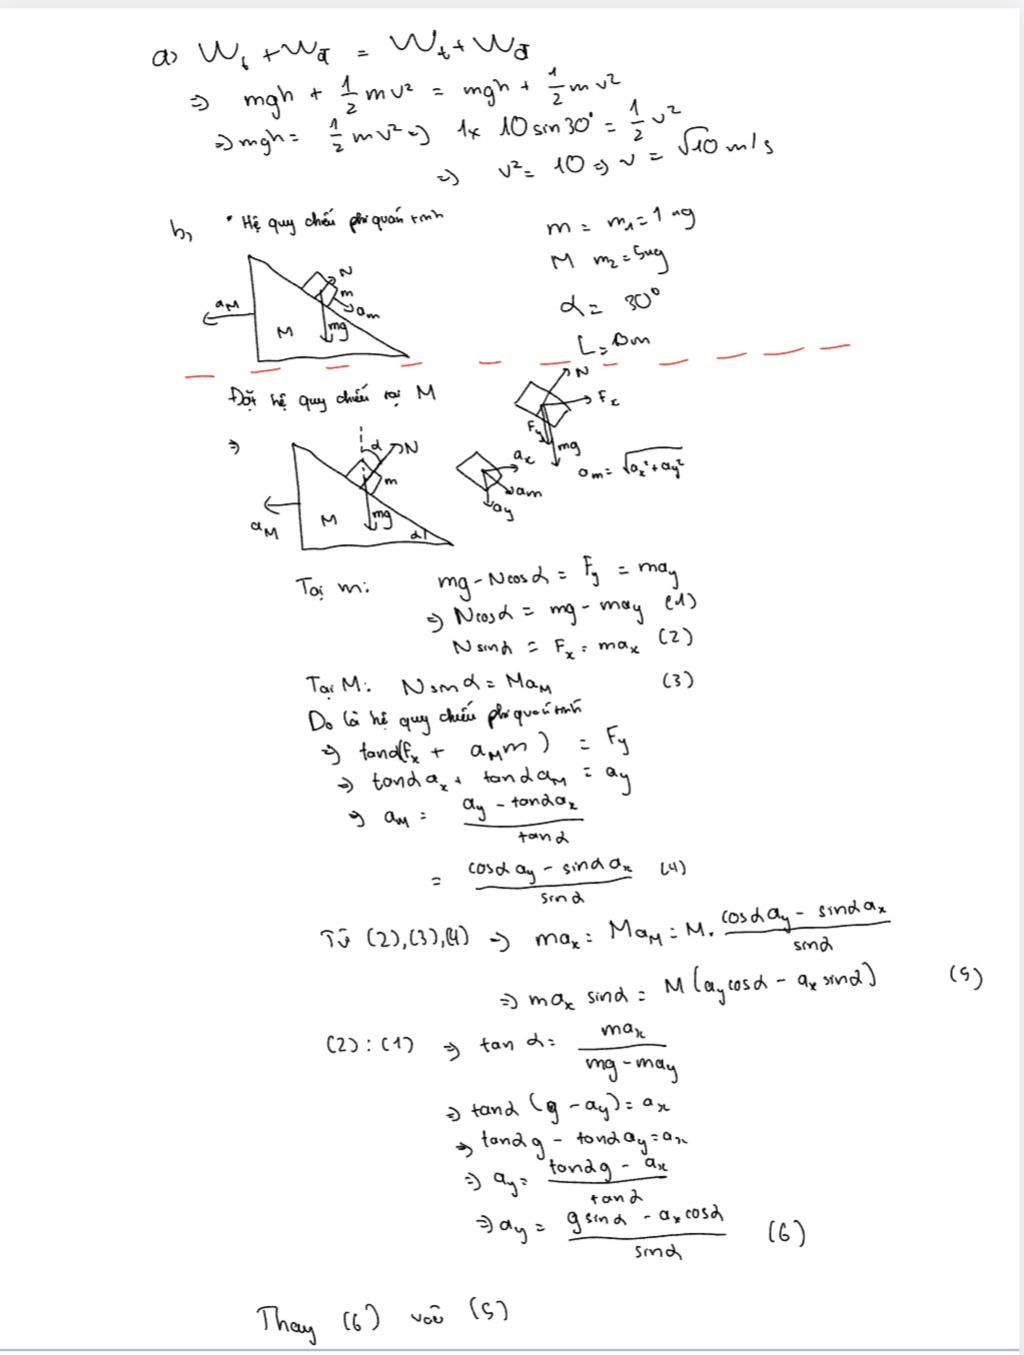 a) Wt + Wđ = Wt + Wđ
=> mgh + 1/2 mv² = mgh + 1/2 mv²
=> mgh = 1/2 mv² => 1x 10 sin30° = 1/2 v²
=> v² = 10 => v = √10 m/s
b, * Hệ quy chiếu phi quán tính
m = m₁ = 1 kg
M m₂ = 5kg
α = 30°
L =
N
m
aM
am
M
mg
Đặt hệ quy chiếu tại M
N
Fx
Fy
mg
=>
α
N
m
aM
M
mg
α
ax
am
ay
am = √(ax² + ay²)
Tại m: mg - Ncosα = Fy = may
=> Ncosα = mg - may (1)
Nsinα = Fx = max (2)
Tại M: Nsinα = MaM (3)
Do là hệ quy chiếu phi quán tính
=> tanα(Fx + aMm) = Fy
=> tanα ax + tanα aM = ay
=> aM = (ay - tanα ax) / tanα
= (cosα ay - sinα ax) / sinα (4)
Từ (2),(3),(4) => max = MaM = M. (cosα ay - sinα ax) / sinα
=> max sinα = M(ay cosα - ax sinα) (5)
(2) : (1) => tanα = max / (mg - may)
=> tanα (g - ay) = ax
=> tanα g - tanα ay = ax
=> ay = (tanα g - ax) / tanα
=> ay = (g sinα - ax cosα) / sinα (6)
Thay (6) vào (5)